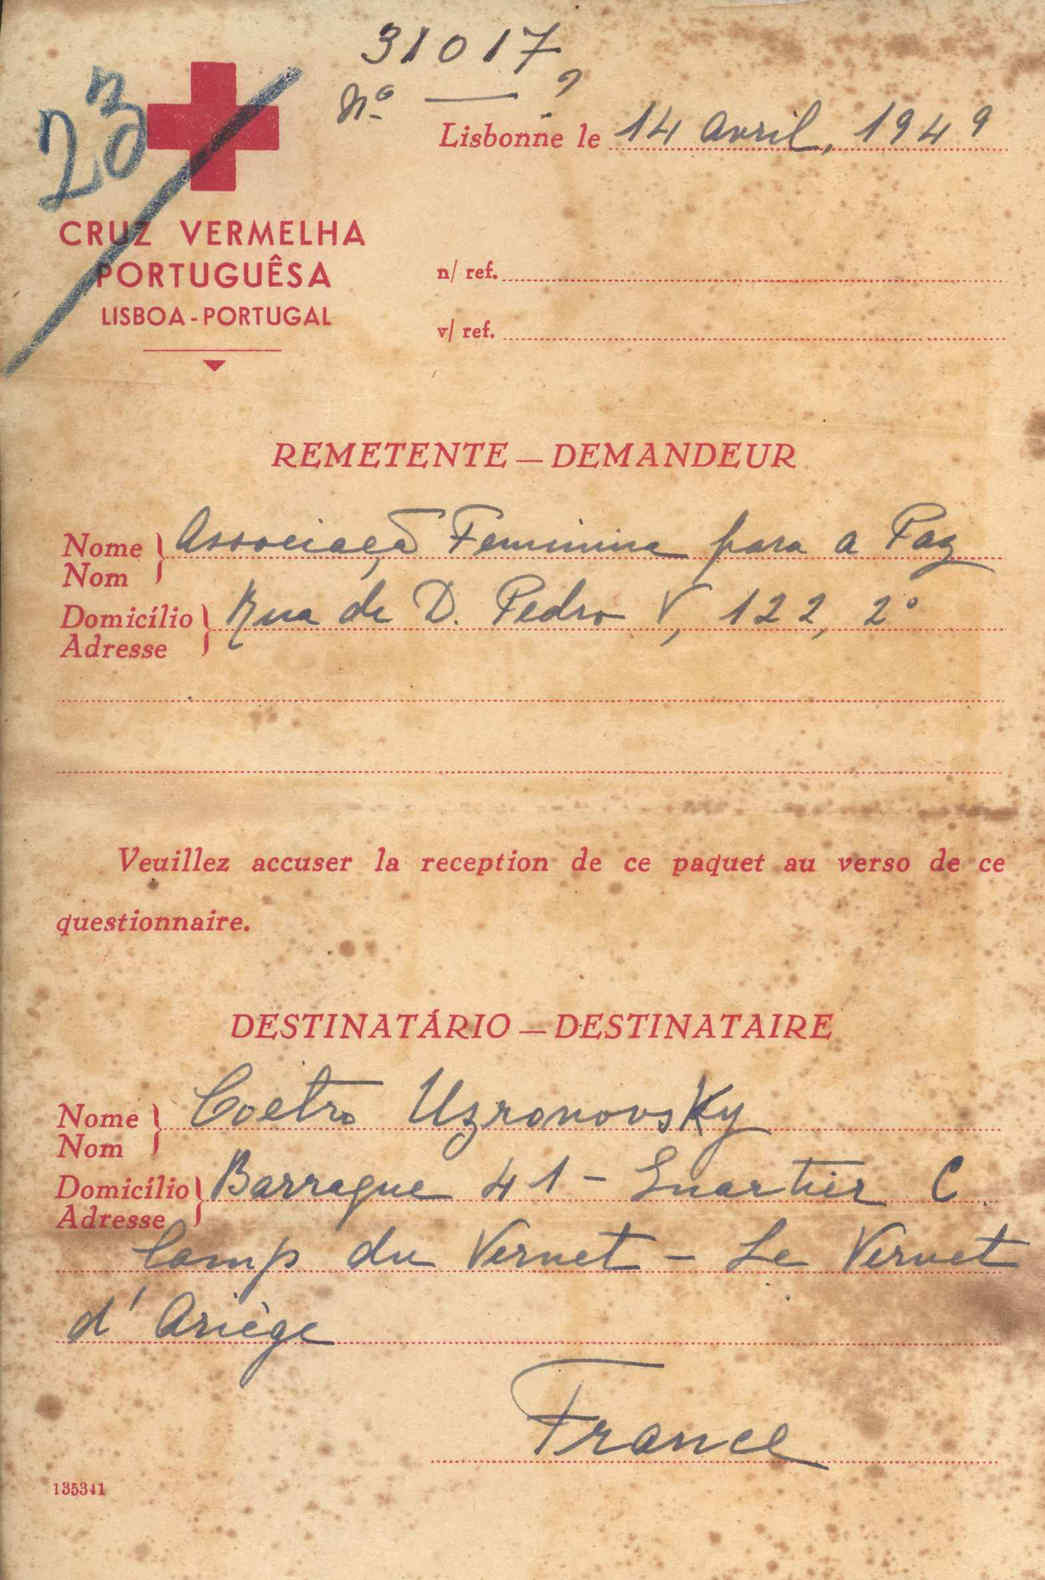 31017
23
Nº — ?
Lisbonne le 14 avril, 1949
CRUZ VERMELHA
PORTUGUÊSA
LISBOA - PORTUGAL
n/ ref.
v/ ref.
REMETENTE — DEMANDEUR
Nome Associaçã Feminina para a Paz
Nom
Domicílio Rua de D. Pedro V, 122, 2º
Adresse
Veuillez accuser la reception de ce paquet au verso de ce
questionnaire.
DESTINATÁRIO — DESTINATAIRE
Nome Coetro Uzronovsky
Nom
Domicílio Barraque 41 - Quartier C
Adresse
Camp du Vernet - Le Vernet
d'Ariège
France
135341